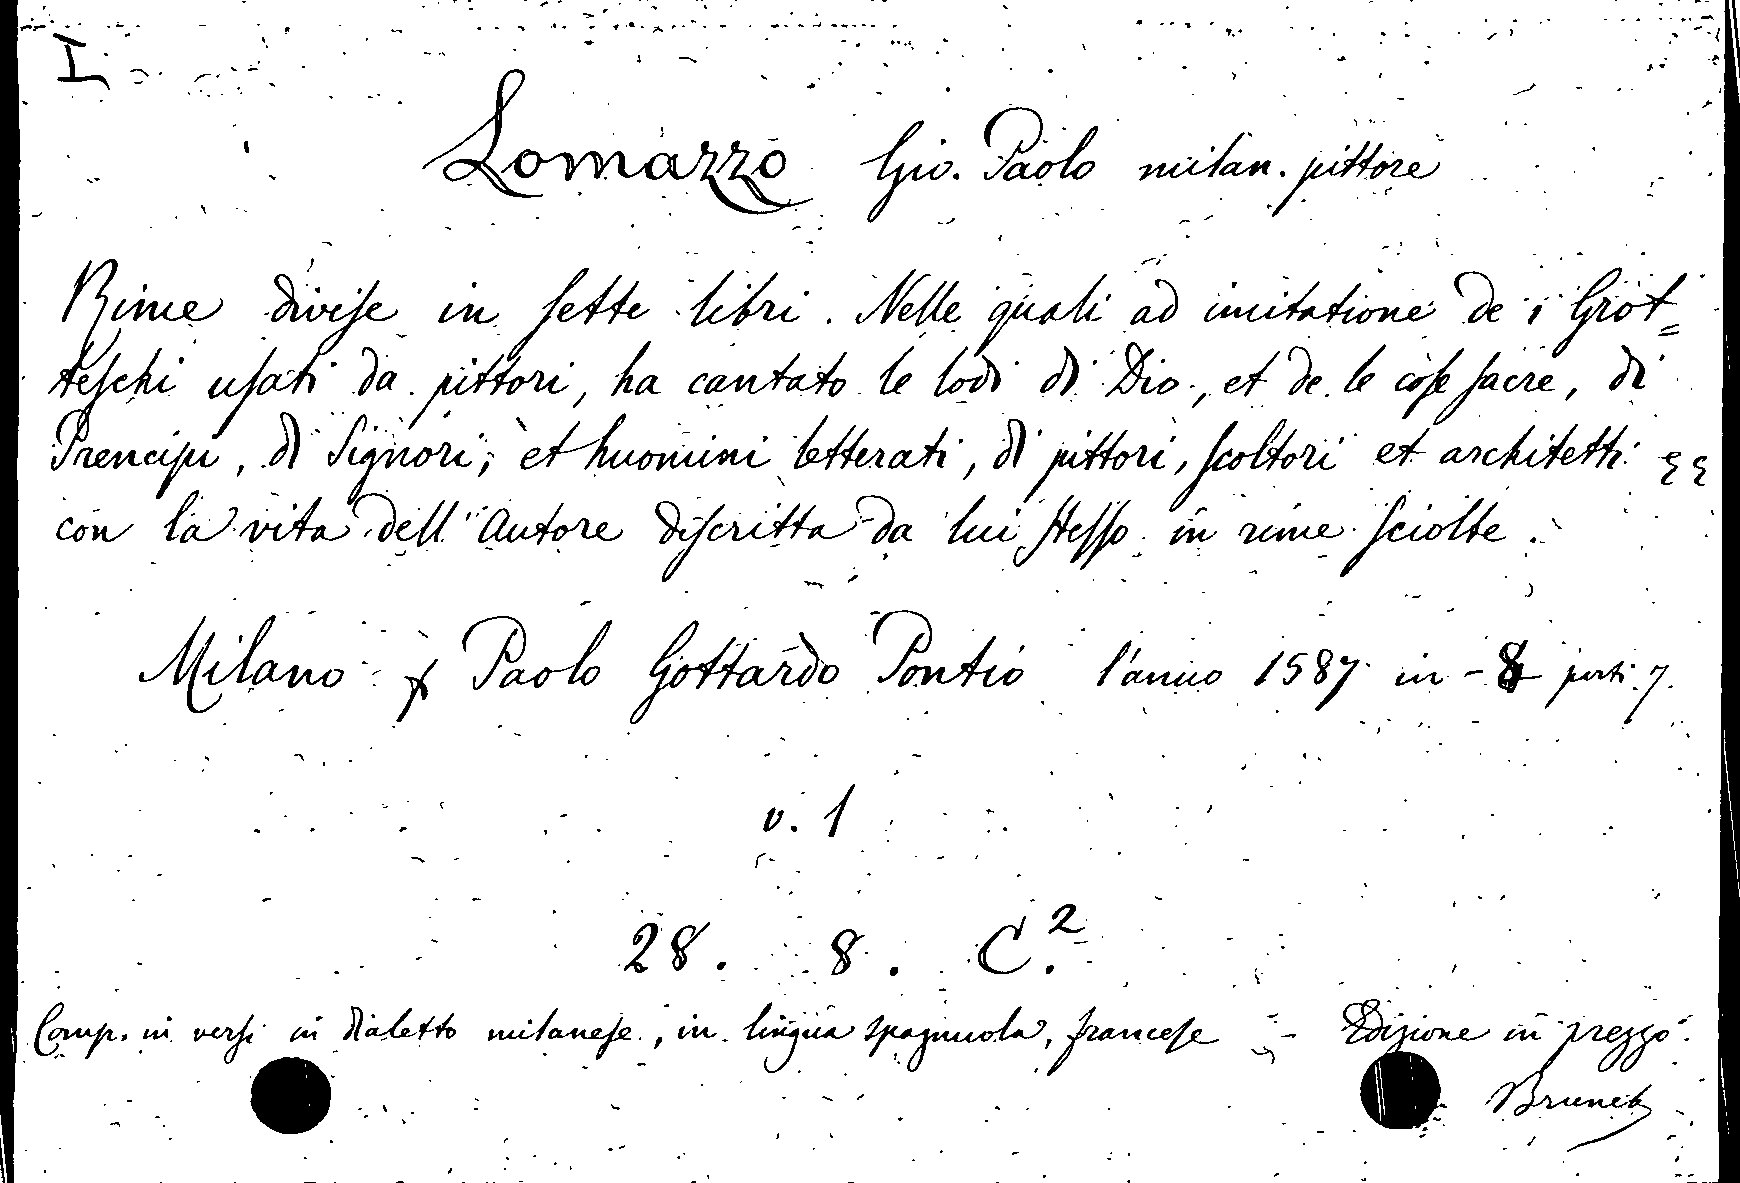 I
Lomazzo Gio. Paolo milan. pittore
Rime divise in sette libri. Nelle quali ad imitatione de i Grot=
teschi usati da pittori, ha cantato le lodi di Dio, et de le cose sacre, di
Prencipi, di Signori, et huomini letterati, di pittori, scoltori et architetti
con la vita dell'Autore discritta da lui stesso in rime sciolte.
Milano p Paolo Gottardo Pontio l'anno 1587 in-8 parti 7.
v. 1
28. 8. C.2
Comp. in versi in dialetto milanese, in lingua spagnuola, francese - Edizione in prezzo.
Brunet